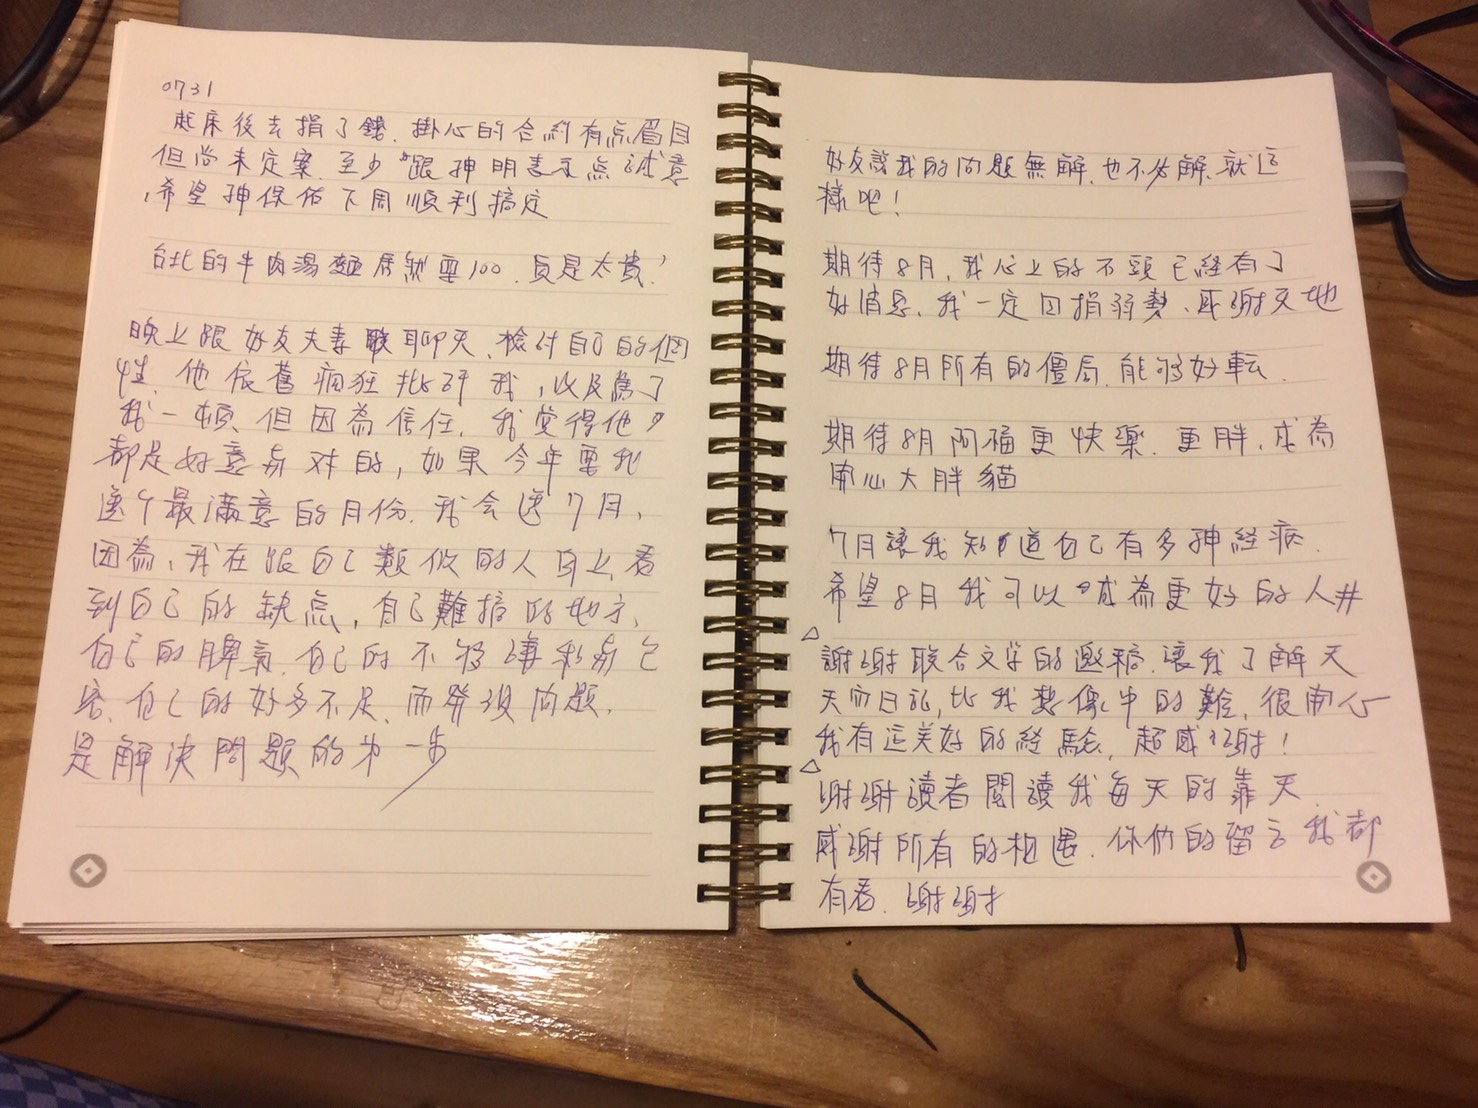 0731
起床後去捐了錢、掛心的合約有点眉目
但尚未定案、至少跟神明表示点誠意
,希望神保佑下周順利搞定
台北的牛肉湯麵居然要100、真是太貴!
晚上跟好友夫妻聊天、檢討自己的個
性、他依舊瘋狂批評我,以及罵了
我一頓、但因為信任、我覺得他
都是好意与对的,如果今年要我
選个最滿意的月份、我会選7月、
因為、我在跟自己類似的人身上看
到自己的缺点,自己難搞的地方、
自己的脾氣、自己的不夠謙和与包
容、自己的好多不足、而發現问题、
是解決問題的第一步
好友說我的问题無解、也不必解、就這
樣吧!
期待8月、我心上的石頭已経有了
好消息、我一定回捐弱勢、感謝天地
期待8月所有的僵局、能够好転
期待8月阿福更快樂、更胖、成為
開心大胖貓
7月讓我知道自己有多神経病、
希望8月我可以成為更好的人#
△謝謝联合文学的邀稿、讓我了解天
天寫日記,比我想像中的難,很開心
我有這美好的経驗、超感謝!
△謝謝讀者閱讀我每天的靠夭
感謝所有的相遇、你們的留言我都
有看、謝謝